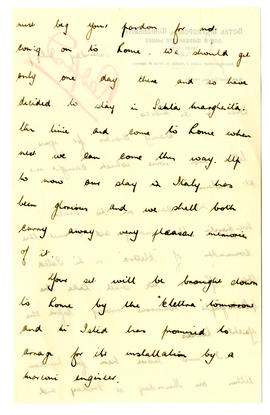 must beg your pardon for not
going on to Rome. We should get
only one day there and so have
decided to stay in Santa Margherita
this time and come to Rome when
next we can come this way. Up
to now our stay in Italy has
been glorious and we shall both
carry away very pleasant memories
of it.
Your set will be brought down
to Rome by the "Elettra" tomorrow
and Mr Isted has promised to
arrange for its installation by a
Marconi engineer.